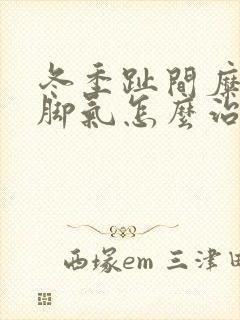 冬季趾間糜
脚氣怎麽治
西塚em 三津田